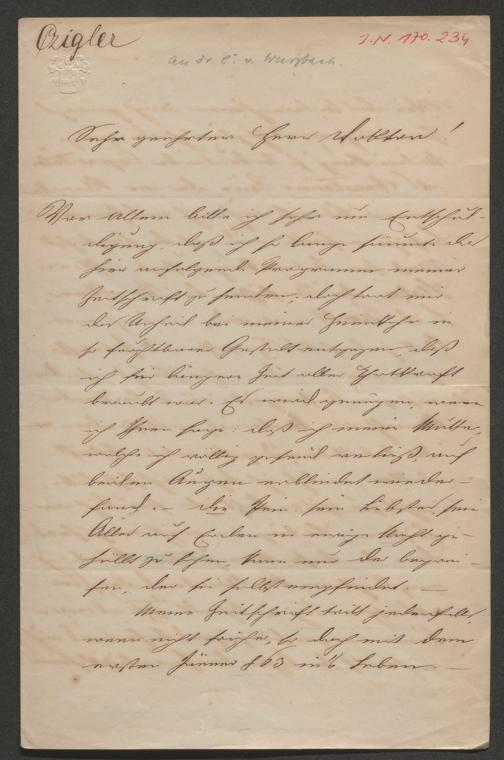 Czigler
J.N. 170.234
An Dr. C. v. Wurzbach.
Sehr geehrter Herr Doktor!
Vor Allem bitte ich sehr um Entschul-
digung, daß ich so lange säumte das
hier anfolgende Programm meiner
Zeitschrift zu senden, doch trat mir
das Unheil bei meiner Heimkehr in
so furchtbarer Gestalt entgegen, daß
ich für längere Zeit aller Thatkraft
beraubt war. Es wird genügen, wenn
ich Ihnen sage: daß ich meine Mutter,
welche ich völlig gesund verließ, auf
beiden Augen erblindet wieder-
fand. – Die Pein, sein Liebstes, sein
Alles auf Erden in ewige Nacht ge-
hüllt zu sehen, kann nur der begrei-
fen, der sie selbst empfindet. –
Meine Zeitschrift tritt jedenfalls,
wenn nicht früher, so doch mit dem
ersten Jänner 863 in's Leben. –